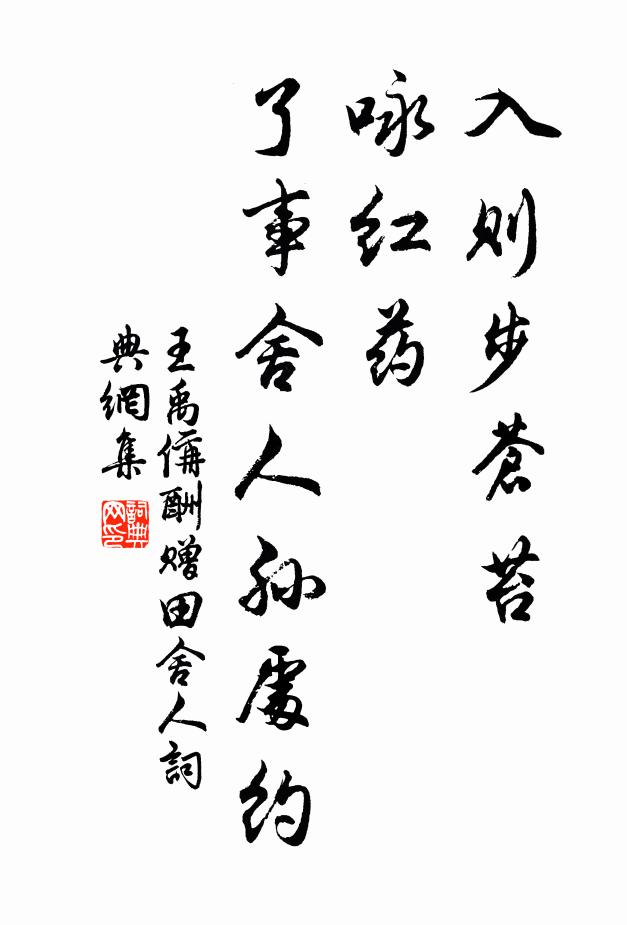 入则步蒼苔
咏红药
了事舍人孙處约
王禹偁酬赠田舍人詞
典網集
詞典
网印